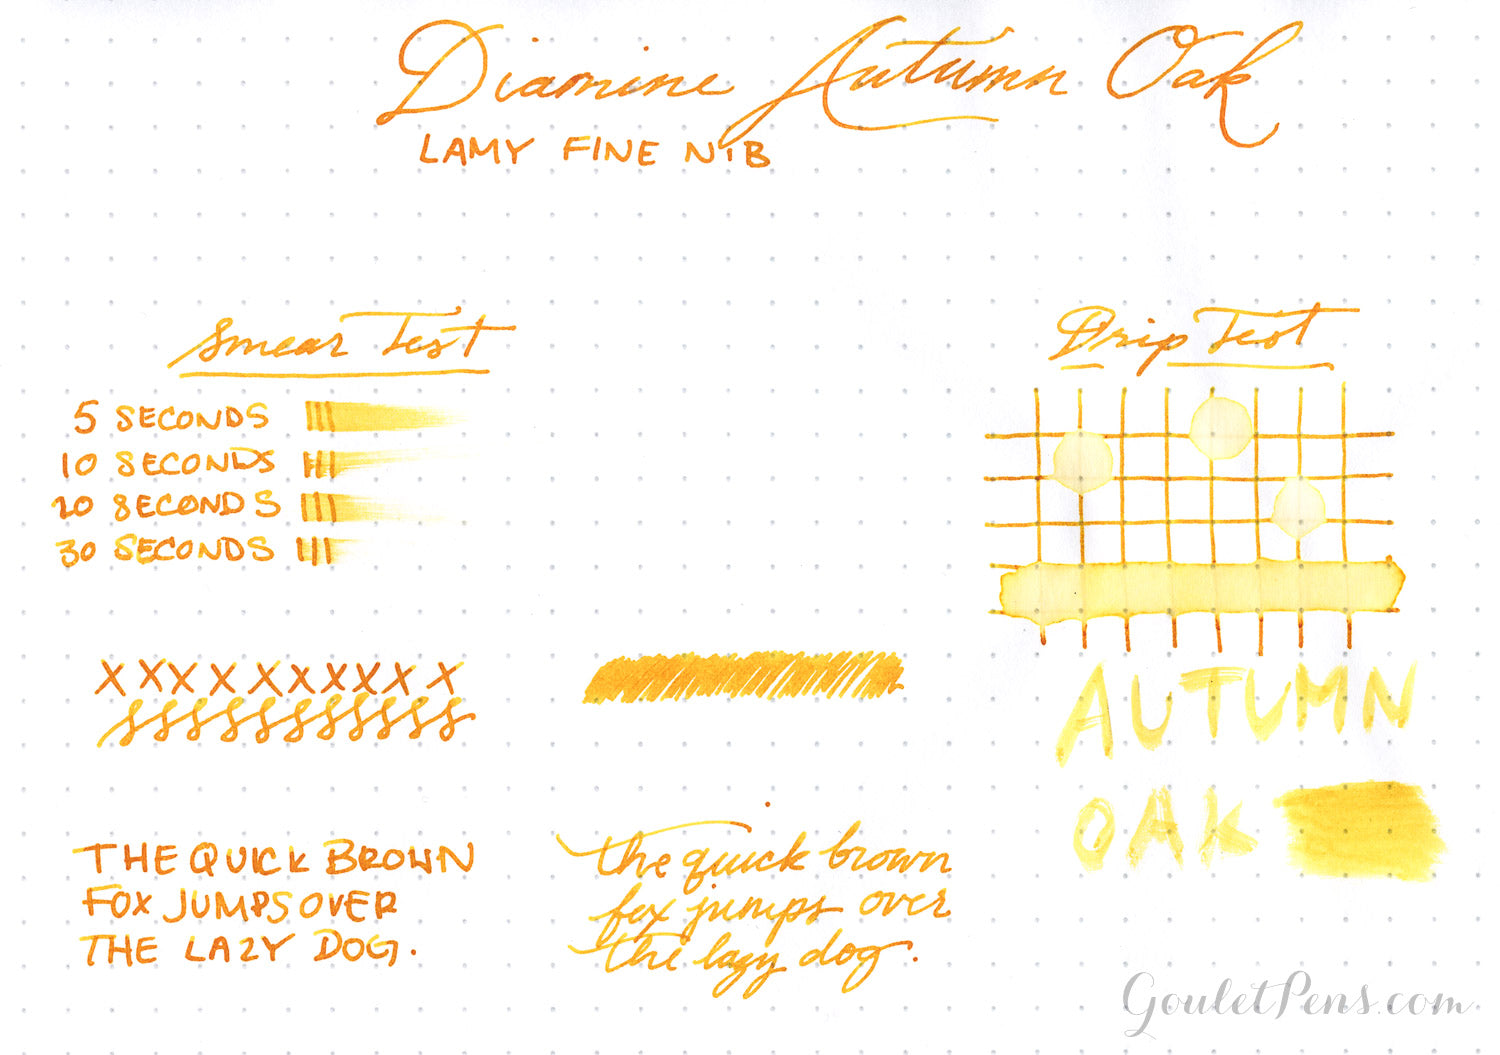 Diamine Autumn Oak
LAMY FINE NIB
Smear Test
5 SECONDS
10 SECONDS
20 SECONDS
30 SECONDS
Drip Test
x x x x x x x x x x
AUTUMN
OAK
THE QUICK BROWN
FOX JUMPS OVER
THE LAZY DOG.
the quick brown
fox jumps over
the lazy dog.
GouletPens.com